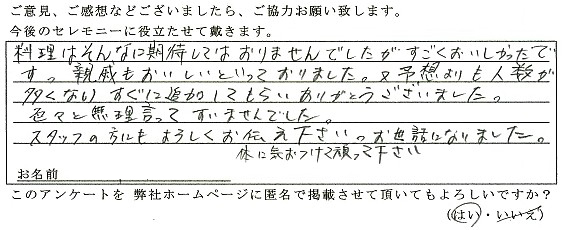 ご意見、ご感想などございましたら、ご協力お願い致します。
今後のセレモニーに役立たせて戴きます。
料理はそんなに期待してはおりませんでしたがすごくおいしかったで
す。親戚もおいしいといっておりました。又予想よりも人数が
多くなりすぐに追加してもらいありがとうございました。
色々と無理言ってすいませんでした。
スタッフの方にもよろしくお伝え下さい。お世話になりました。
体に気おつけて頑って下さい
お名前
このアンケートを 弊社ホームページに匿名で掲載させて頂いてもよろしいですか?
(はい・いいえ)